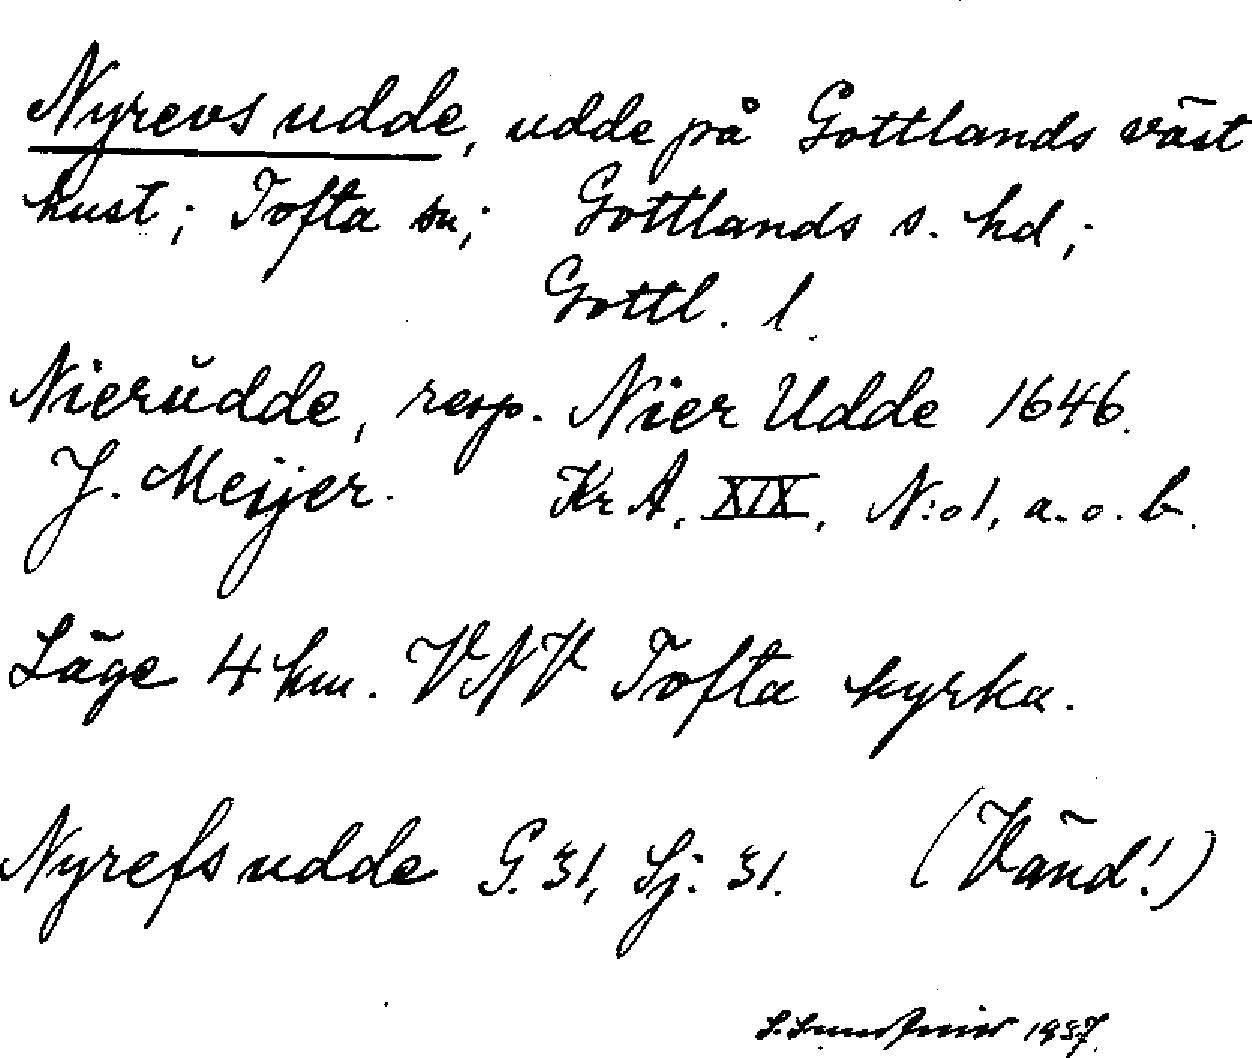 Nyrevs udde, udde på Gottlands väst
kust; Tofta sn; Gottlands s. hd;
Gottl. l.
Nierŭdde, resp. Nier Udde 1646.
J. Meijer. Kr A. XIX, N:o 1, a. o. b.
Läge 4 km. VNV Tofta kyrka.
Nyrefs udde G. 31, Sj. 31. (Vänd!)
1937.